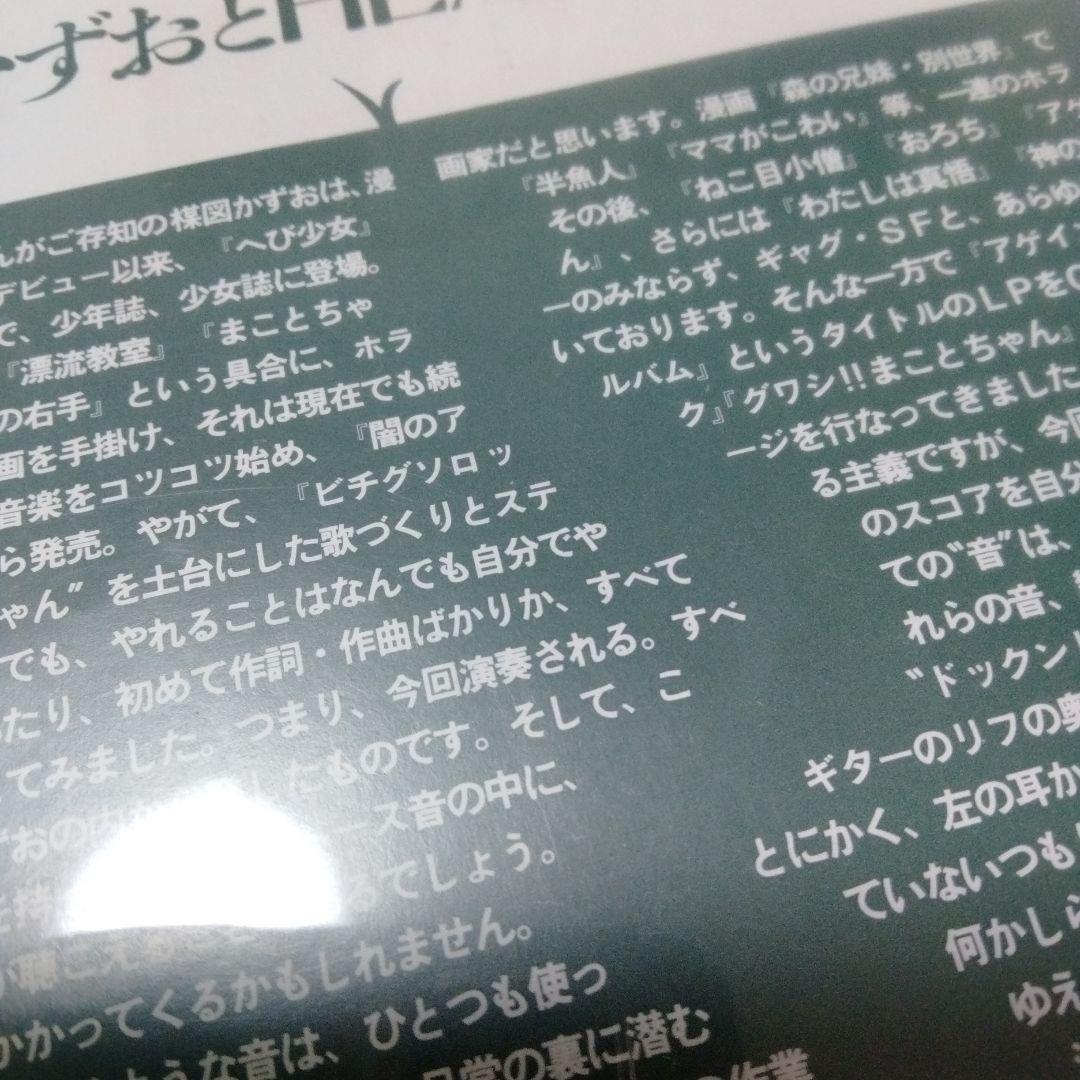 ずおとHEA
んがご存知の楳図かずおは、漫画家だと思います。漫画『森の兄妹・別世界』で
デビュー以来、『へび少女』『半魚人』『ママがこわい』等、一連のホラ
で、少年誌、少女誌に登場。その後、『ねこ目小僧』『おろち』『アゲ
『漂流教室』『まことちゃん』、さらには『わたしは真悟』『神の
の右手』という具合に、ホラーのみならず、ギャグ・SFと、あらゆ
画を手掛け、それは現在でも続いております。そんな一方で『アゲイ
音楽をコツコツ始め、『闇のアルバム』というタイトルのLPをC
ら発売。やがて、『ビチグソロック』『グワシ!!まことちゃん』
ゃん”を土台にした歌づくりとステージを行なってきました
でも、やれることはなんでも自分でやる主義ですが、今回
たり、初めて作詞・作曲ばかりか、すべてのスコアを自分
てみました。つまり、今回演奏される。すべての“音”は、
ずおの内 したものです。そして、これらの音、
ース音の中に、“ドックン
るでしょう。ギターのリフの奥
かかってくるかもしれません。とにかく、左の耳か
ような音は、ひとつも使っていないいつも
日常の裏に潜む何かしら
の作業ゆえ